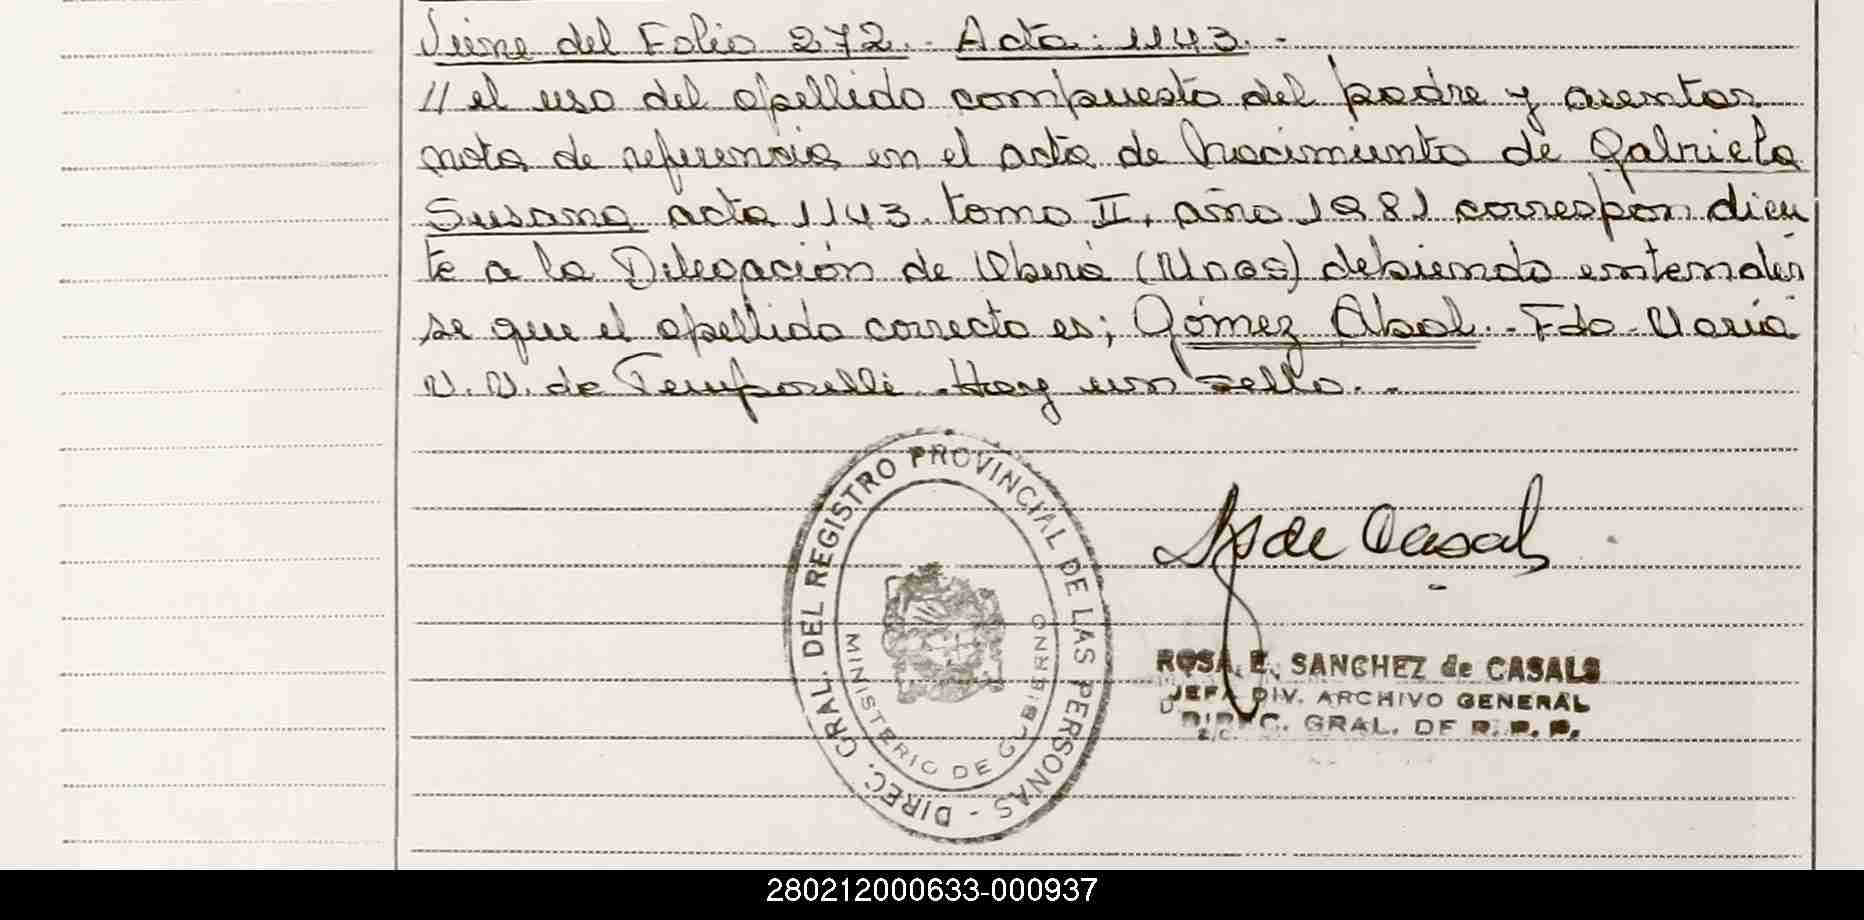 Viene del Folio 272.- Acta: 1143.-
// el uso del apellido compuesto del padre y asentar
nota de referencia en el acta de Nacimiento de Gabriela
Susana acta 1143. tomo II, año 1981 correspondien
te a la Delegación de Oberá (Mnes) debiendo entender
se que el apellido correcto es; Gómez Abal.- Fdo. María
V. V. de Temporelli. Hay un sello.-
DIREC. GRAL. DEL REGISTRO PROVINCIAL DE LAS PERSONAS -
MINISTERIO DE GOBIERNO
de Casals
ROSA E. SANCHEZ de CASALS
JEFA DIV. ARCHIVO GENERAL
DIREC. GRAL. DE R. P. P.
280212000633-000937